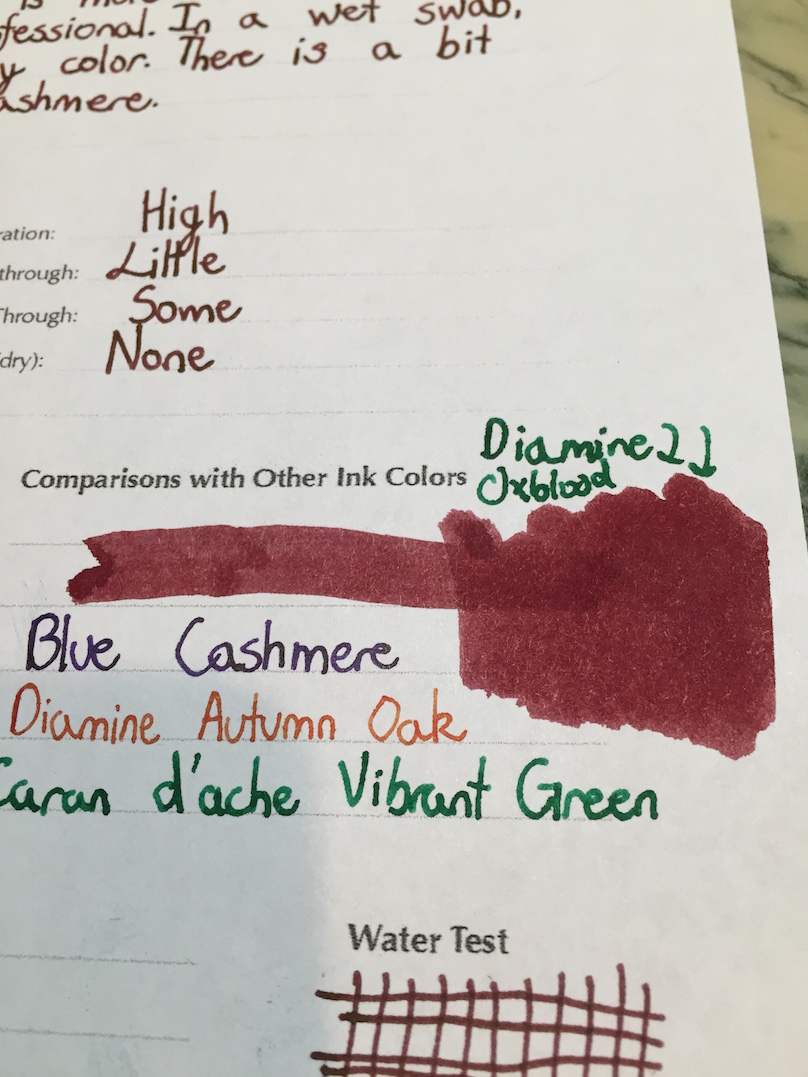 is more
fessional. In a wet swab,
y color. There is a bit
ashmere.
ration: High
through: Little
Through: Some
(dry): None
Diamine
Oxblood
Comparisons with Other Ink Colors
Blue Cashmere
Diamine Autumn Oak
Caran d'ache Vibrant Green
Water Test